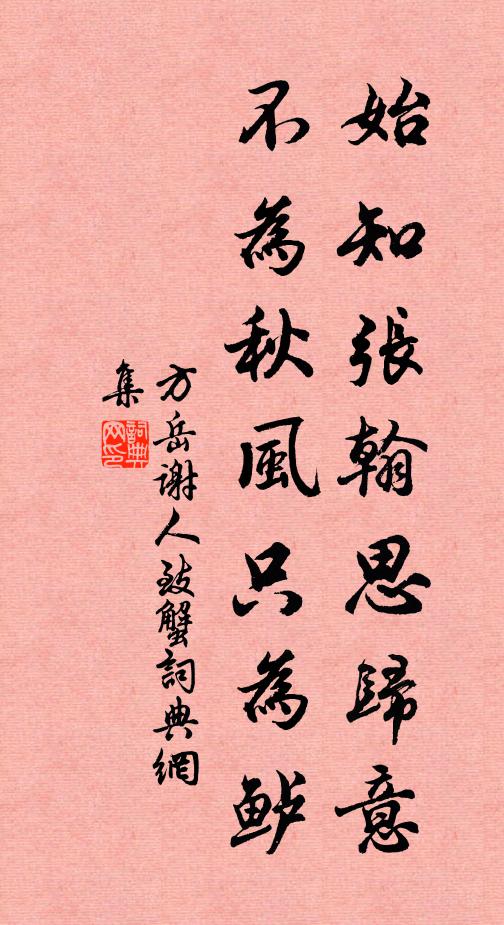 始知張翰思歸意
不為秋風只為鲈
方岳謝人致蟹詞典網
集
詞典
网印